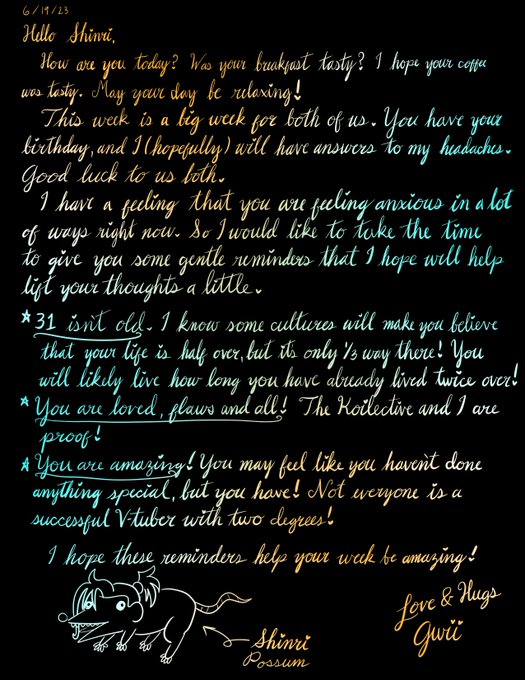 6/19/23
Hello Shinri,
How are you today? Was your breakfast tasty? I hope your coffee
was tasty. May your day be relaxing!
This week is a big week for both of us. You have your
birthday, and I (hopefully) will have answers to my headaches.
Good luck to us both.
I have a feeling that you are feeling anxious in a lot
of ways right now. So I would like to take the time
to give you some gentle reminders that I hope will help
lift your thoughts a little.
★ 31 isn't old. I know some cultures will make you believe
that your life is half over, but its only ⅓ way there! You
will likely live how long you have already lived twice over!
★ You are loved, flaws and all! The Koilective and I are
proof!
★ You are amazing! You may feel like you haven't done
anything special, but you have! Not everyone is a
successful V-tuber with two degrees!
I hope these reminders help your week be amazing!
Love & Hugs
Gwii
Shinri
Possum